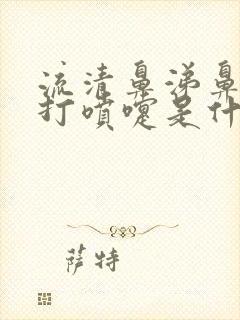 流清鼻涕鼻
打喷嚏是什
萨特